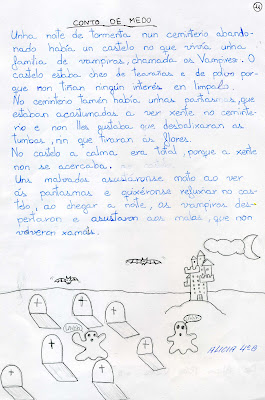 CONTO DE MEDO
Unha noite de tormenta nun cemiterio abando-
nado había un castelo no que vivía unha
familia de vampiros, chamada os Vampirev. O
castelo estaba cheo de tearañas e de polvo por-
que non tiñan ningún interés en limpalo.
No cemiterio tamén había unhas pantasmas, que
estaban acostumadas a ver xente no cemite-
rio e non lles gustaba que desbalixaran as
tumbas, nin que tiraran as flores.
No castelo a calma era total, porque a xente
non se acercaba.
Uns malvados asustáronse moito ao ver
ás pantasmas e quixéronse refuxiar no cas-
telo, ao chegar a noite, os vampiros des-
pertaron e asustaron aos malos, que non
volveron xamáis.
ALICIA 4ºB